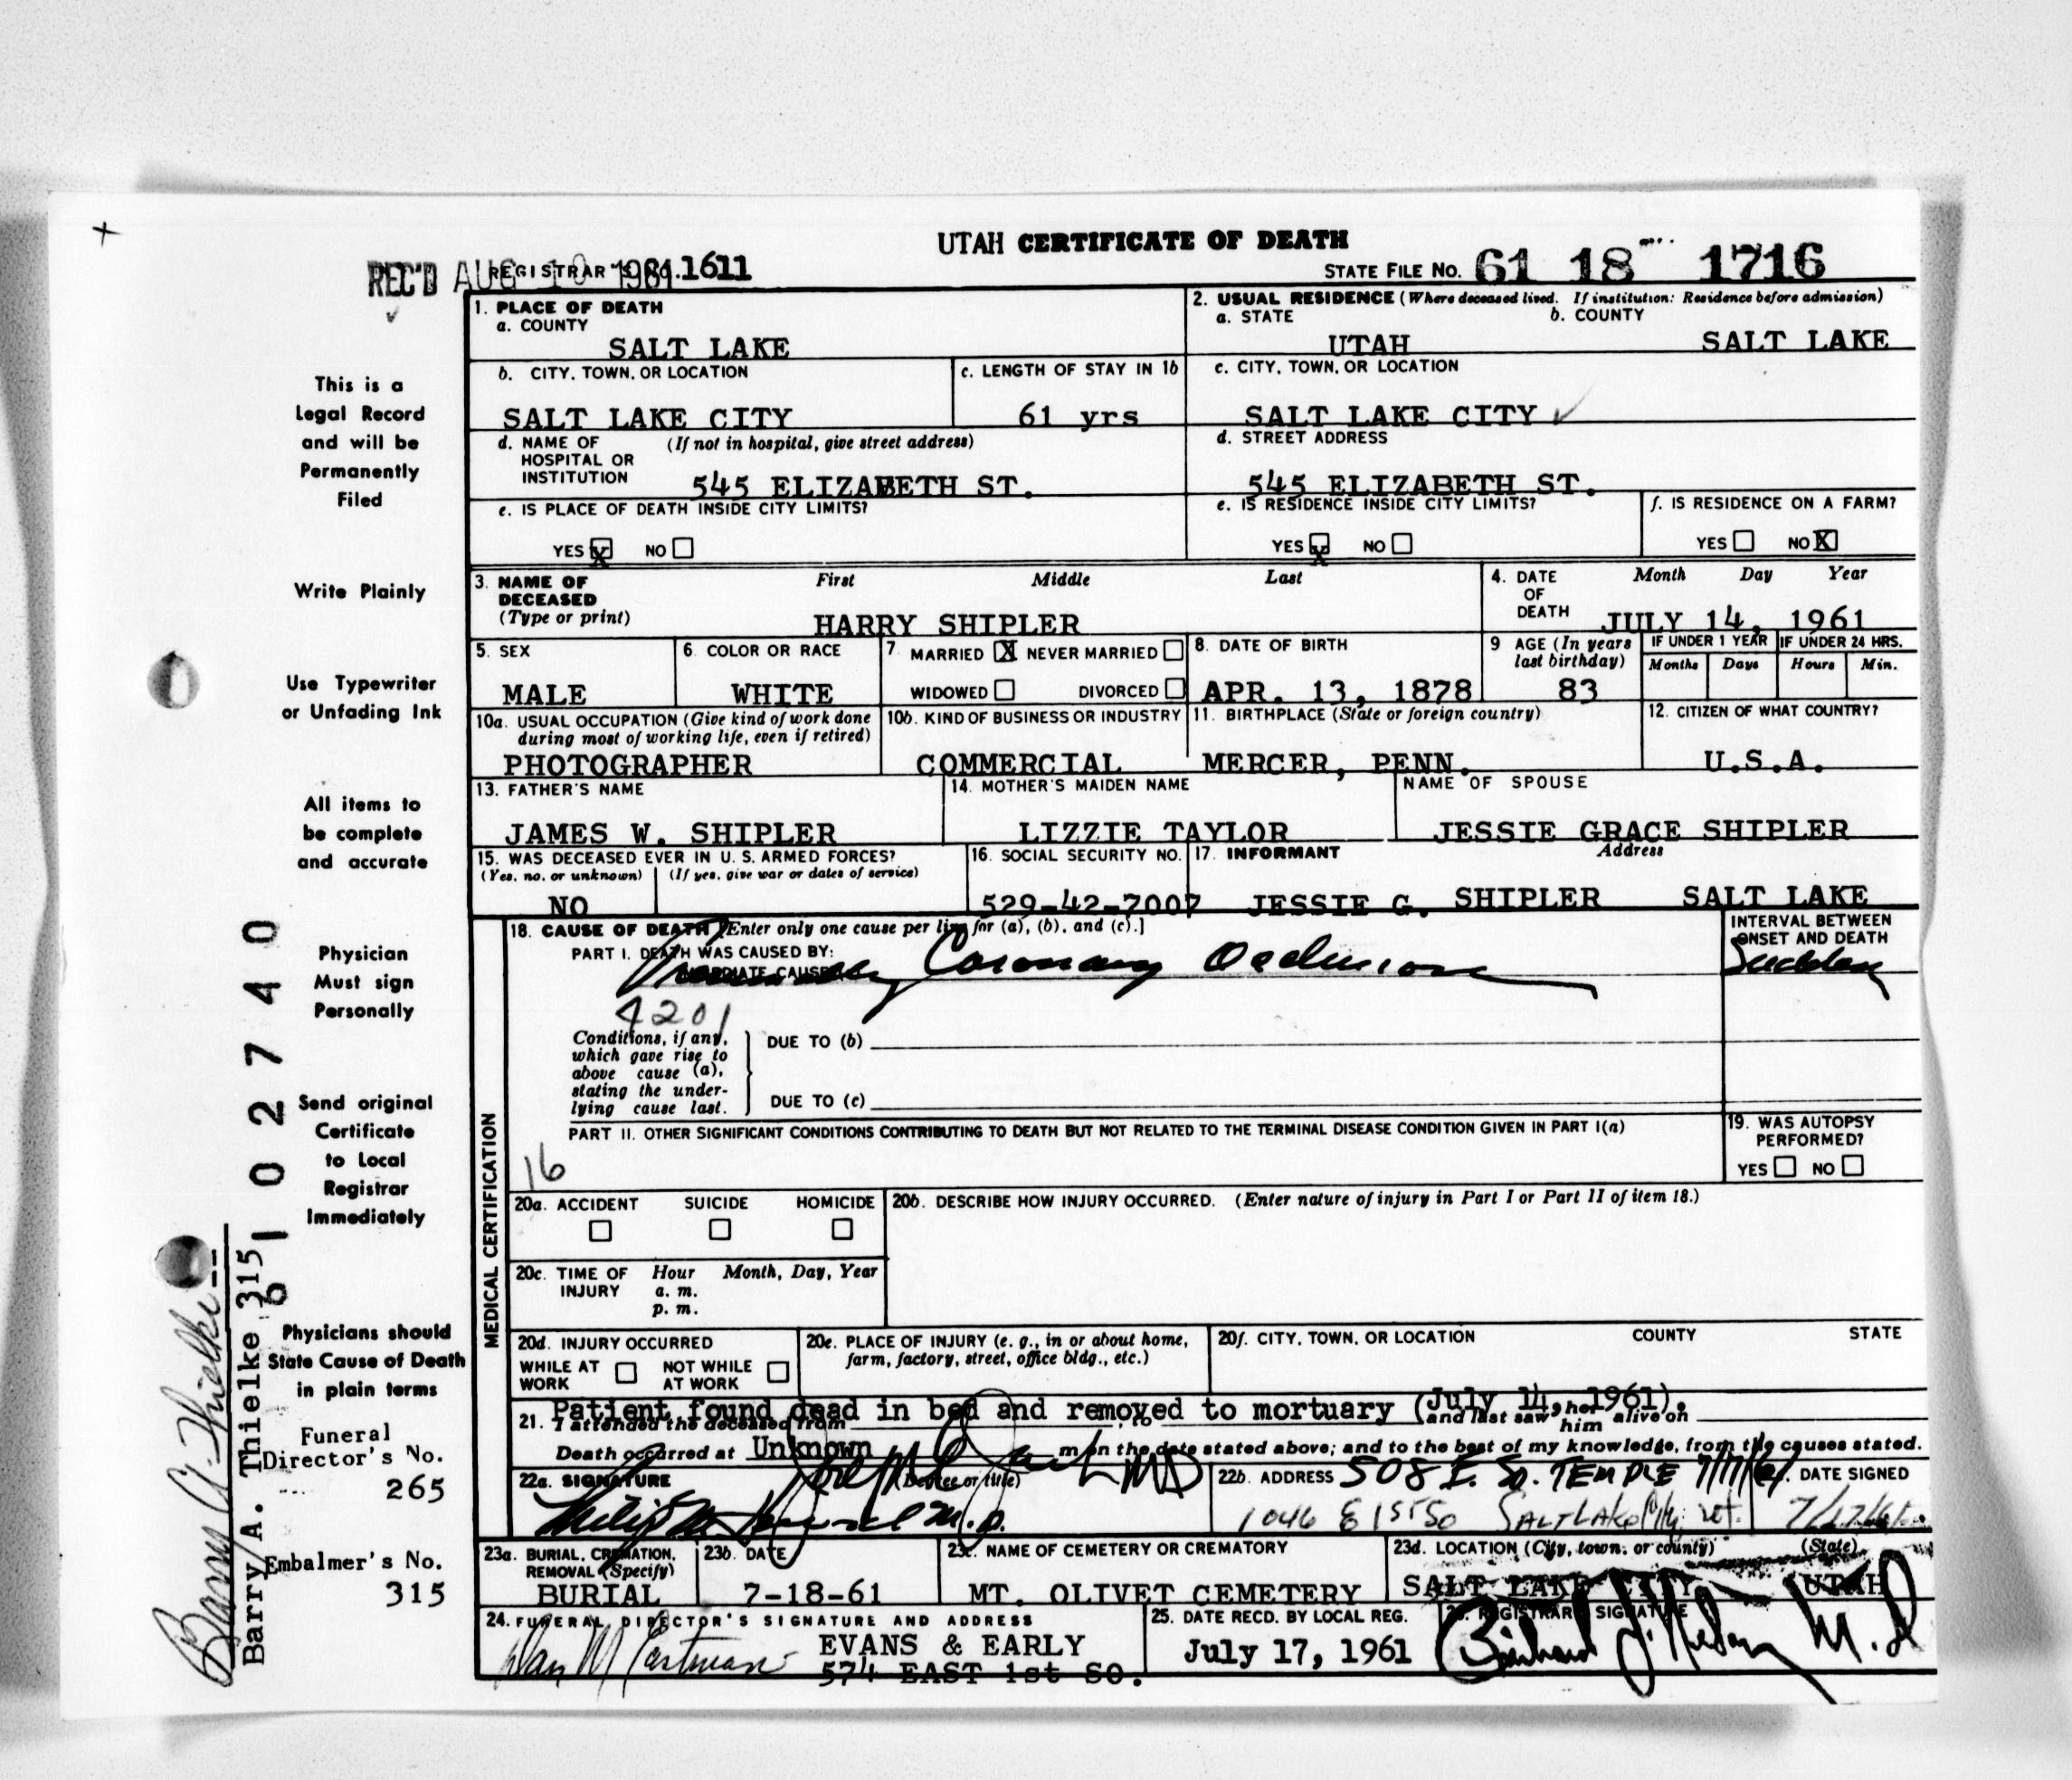 UTAH CERTIFICATE OF DEATH
REC'D AUG 10 1961 REGISTRAR'S No. 1611
STATE FILE No. 61 18 1716
1. PLACE OF DEATH
a. COUNTY
SALT LAKE
2. USUAL RESIDENCE (Where deceased lived. If institution: Residence before admission)
a. STATE b. COUNTY
UTAH SALT LAKE
b. CITY, TOWN, OR LOCATION c. LENGTH OF STAY IN 1b
SALT LAKE CITY 61 yrs
c. CITY, TOWN, OR LOCATION
SALT LAKE CITY ✓
d. NAME OF (If not in hospital, give street address)
HOSPITAL OR
INSTITUTION 545 ELIZABETH ST.
d. STREET ADDRESS
545 ELIZABETH ST.
e. IS PLACE OF DEATH INSIDE CITY LIMITS?
YES X NO
e. IS RESIDENCE INSIDE CITY LIMITS?
YES X NO
f. IS RESIDENCE ON A FARM?
YES NO X
3. NAME OF First Middle Last
DECEASED
(Type or print) HARRY SHIPLER
4. DATE Month Day Year
OF
DEATH JULY 14, 1961
5. SEX
MALE
6. COLOR OR RACE
WHITE
7. MARRIED X NEVER MARRIED
WIDOWED DIVORCED
8. DATE OF BIRTH
APR. 13, 1878
9 AGE (In years
last birthday)
83
IF UNDER 1 YEAR IF UNDER 24 HRS.
Months Days Hours Min.
10a. USUAL OCCUPATION (Give kind of work done
during most of working life, even if retired)
PHOTOGRAPHER
10b. KIND OF BUSINESS OR INDUSTRY
COMMERCIAL
11. BIRTHPLACE (State or foreign country)
MERCER, PENN.
12. CITIZEN OF WHAT COUNTRY?
U.S.A.
13. FATHER'S NAME
JAMES W. SHIPLER
14. MOTHER'S MAIDEN NAME
LIZZIE TAYLOR
NAME OF SPOUSE
JESSIE GRACE SHIPLER
15. WAS DECEASED EVER IN U. S. ARMED FORCES?
(Yes, no, or unknown) (If yes, give war or dates of service)
NO
16. SOCIAL SECURITY NO.
529-42-7007
17. INFORMANT Address
JESSIE G. SHIPLER SALT LAKE
18. CAUSE OF DEATH [Enter only one cause per line for (a), (b), and (c).]
PART I. DEATH WAS CAUSED BY:
IMMEDIATE CAUSE
Coronary Occlusion
INTERVAL BETWEEN
ONSET AND DEATH
Sudden
4201
Conditions, if any,
which gave rise to
above cause (a),
stating the under-
lying cause last.
DUE TO (b)
DUE TO (c)
PART II. OTHER SIGNIFICANT CONDITIONS CONTRIBUTING TO DEATH BUT NOT RELATED TO THE TERMINAL DISEASE CONDITION GIVEN IN PART I(a)
16
19. WAS AUTOPSY
PERFORMED?
YES NO
MEDICAL CERTIFICATION
20a. ACCIDENT SUICIDE HOMICIDE
20b. DESCRIBE HOW INJURY OCCURRED. (Enter nature of injury in Part I or Part II of item 18.)
20c. TIME OF Hour Month, Day, Year
INJURY a. m.
p. m.
20d. INJURY OCCURRED
WHILE AT NOT WHILE
WORK AT WORK
20e. PLACE OF INJURY (e. g., in or about home,
farm, factory, street, office bldg., etc.)
20f. CITY, TOWN, OR LOCATION COUNTY STATE
Patient found dead in bed and removed to mortuary (July 14, 1961).
21. I attended the deceased from , to and last saw her him alive on
Death occurred at Unknown m on the date stated above; and to the best of my knowledge, from the causes stated.
22a. SIGNATURE (Degree or title) MD
M.D.
22b. ADDRESS 508 E. So. TEMPLE 7/17/61
SALT LAKE City, Ut.
DATE SIGNED
7/17/61
23a. BURIAL, CREMATION,
REMOVAL (Specify)
BURIAL
23b. DATE
7-18-61
23c. NAME OF CEMETERY OR CREMATORY
MT. OLIVET CEMETERY
23d. LOCATION (City, town, or county) (State)
SALT LAKE CITY UTAH
24. FUNERAL DIRECTOR'S SIGNATURE AND ADDRESS
EVANS & EARLY
574 EAST 1st SO.
25. DATE RECD. BY LOCAL REG.
July 17, 1961
26. REGISTRAR'S SIGNATURE
M.D
This is a
Legal Record
and will be
Permanently
Filed
Write Plainly
Use Typewriter
or Unfading Ink
All items to
be complete
and accurate
Physician
Must sign
Personally
Send original
Certificate
to Local
Registrar
Immediately
Physicians should
State Cause of Death
in plain terms
Funeral
Director's No.
265
Embalmer's No.
315
61 02740
Barry A. Thielke
Barry A. Thielke 315